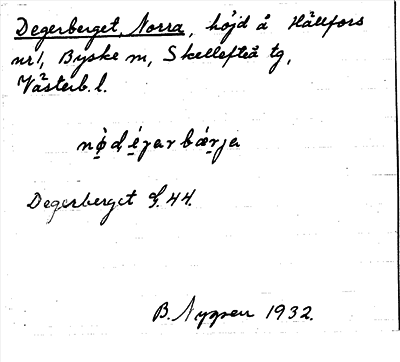 Degerberget, Norra, höjd å Hällfors
nr1, Byske sn, Skellefteå tg,
Västerb. l.
Degerberget G. 44.
B. Nygren 1932.